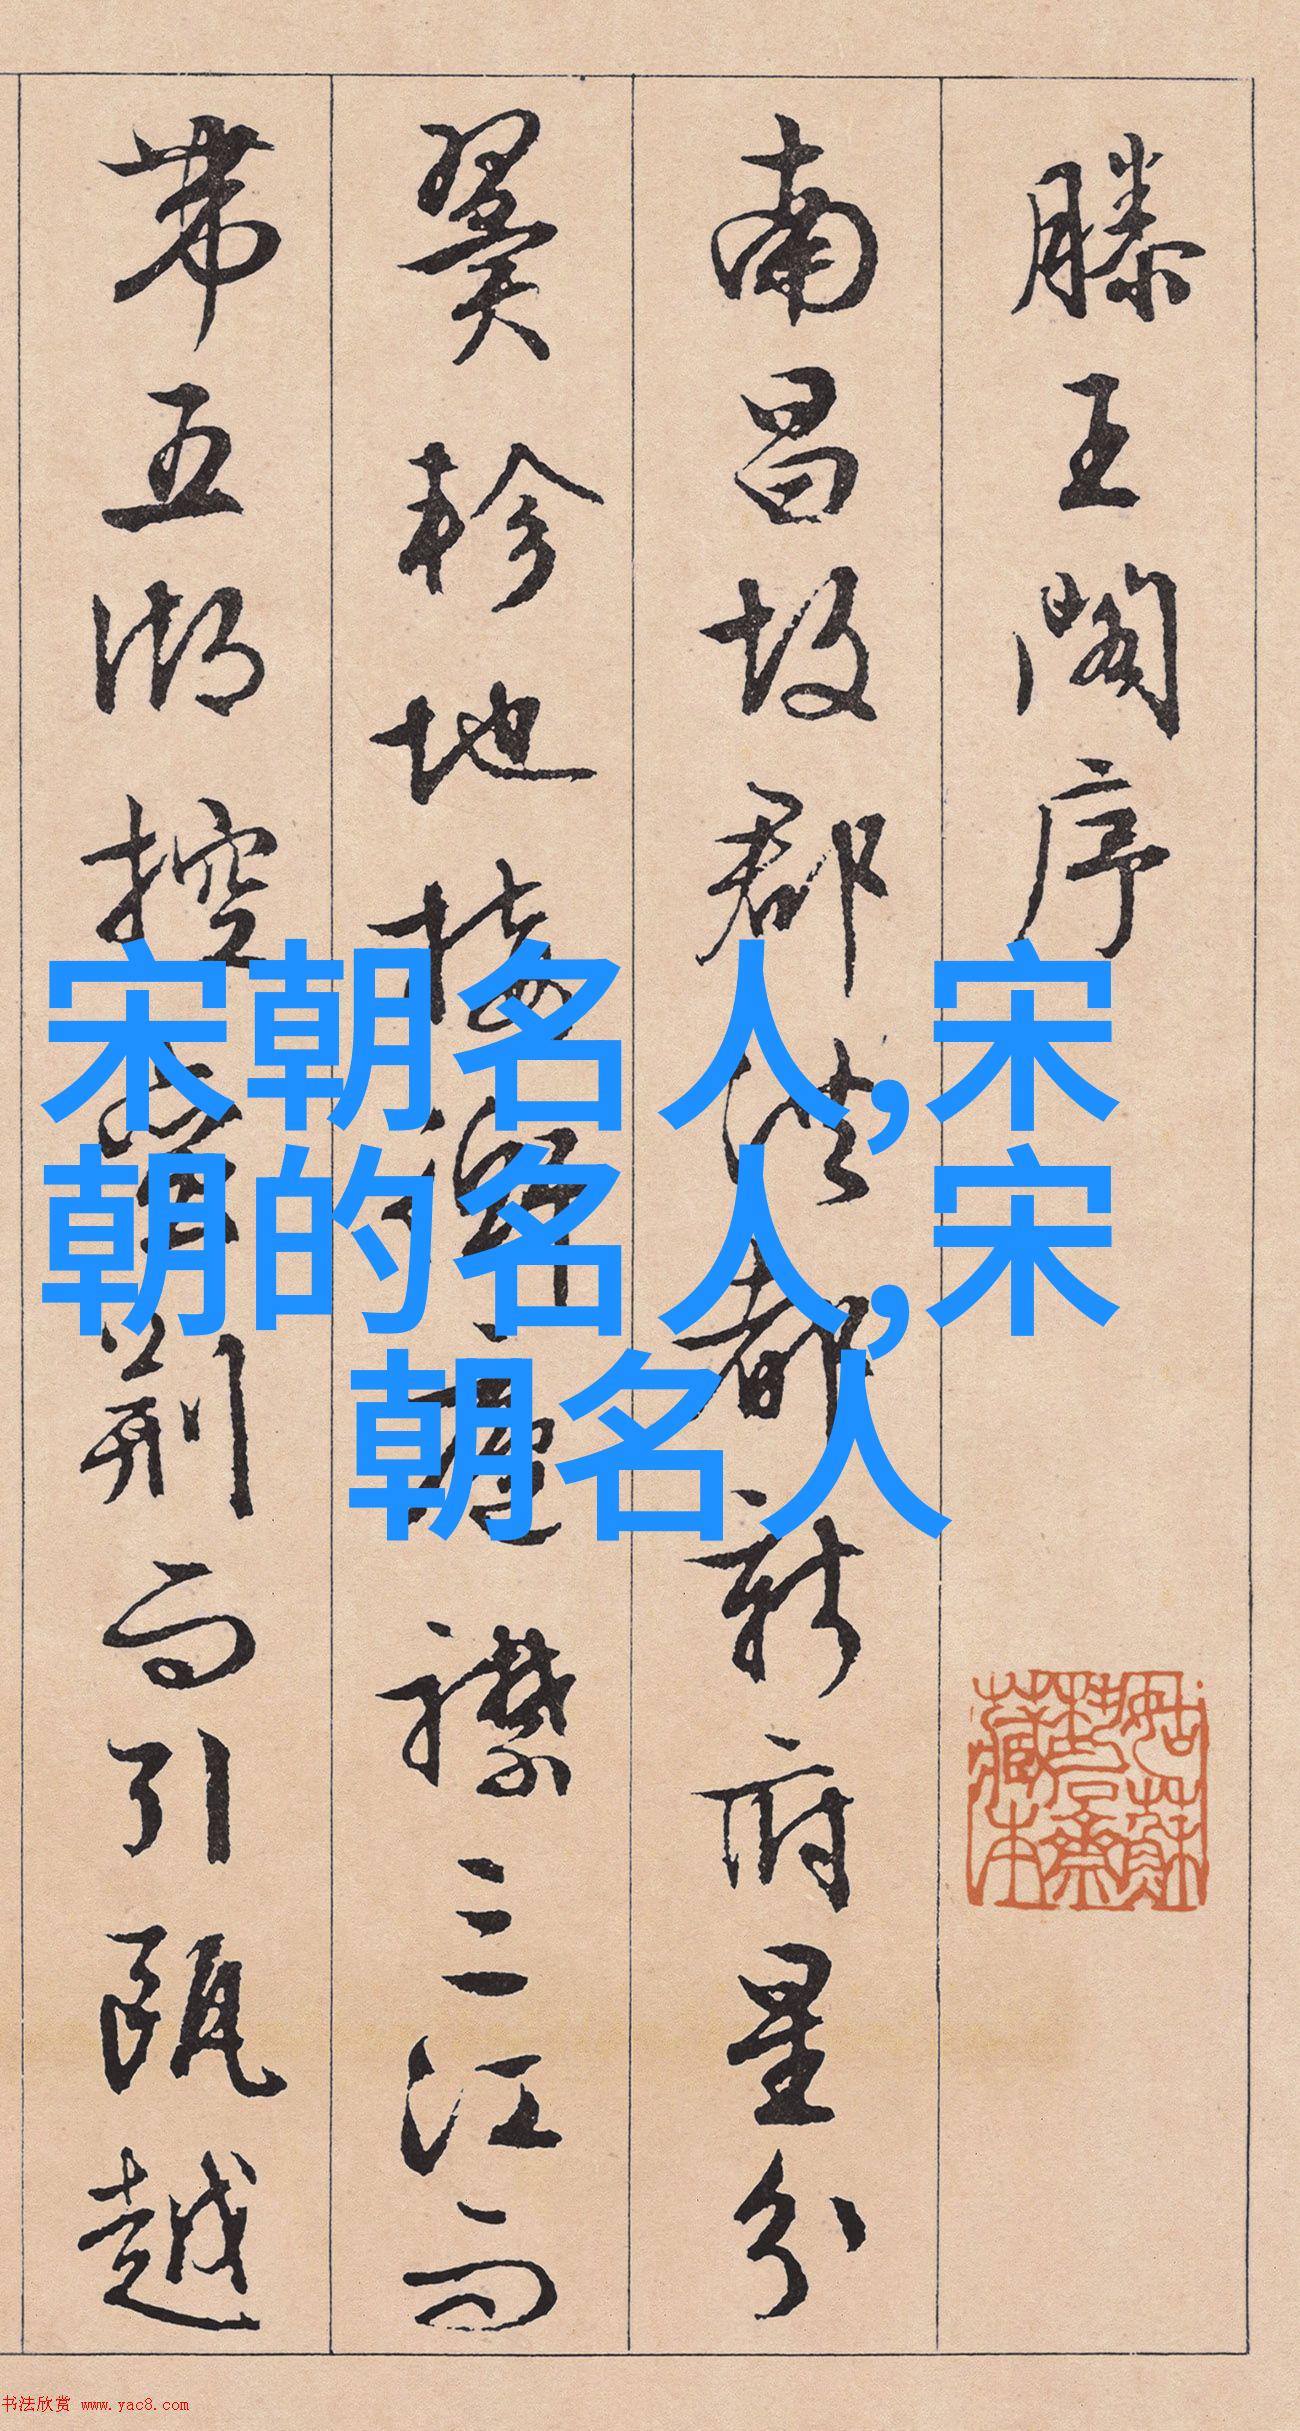 滕王阁序
南昌故郡洪都新府星分
翼轸地接衡庐襟三江而
带五湖控蛮荆而引瓯越
宋朝名人,宋
朝的名人,宋
朝名人
姑苏
藏本
书法欣赏 www.yac8.com